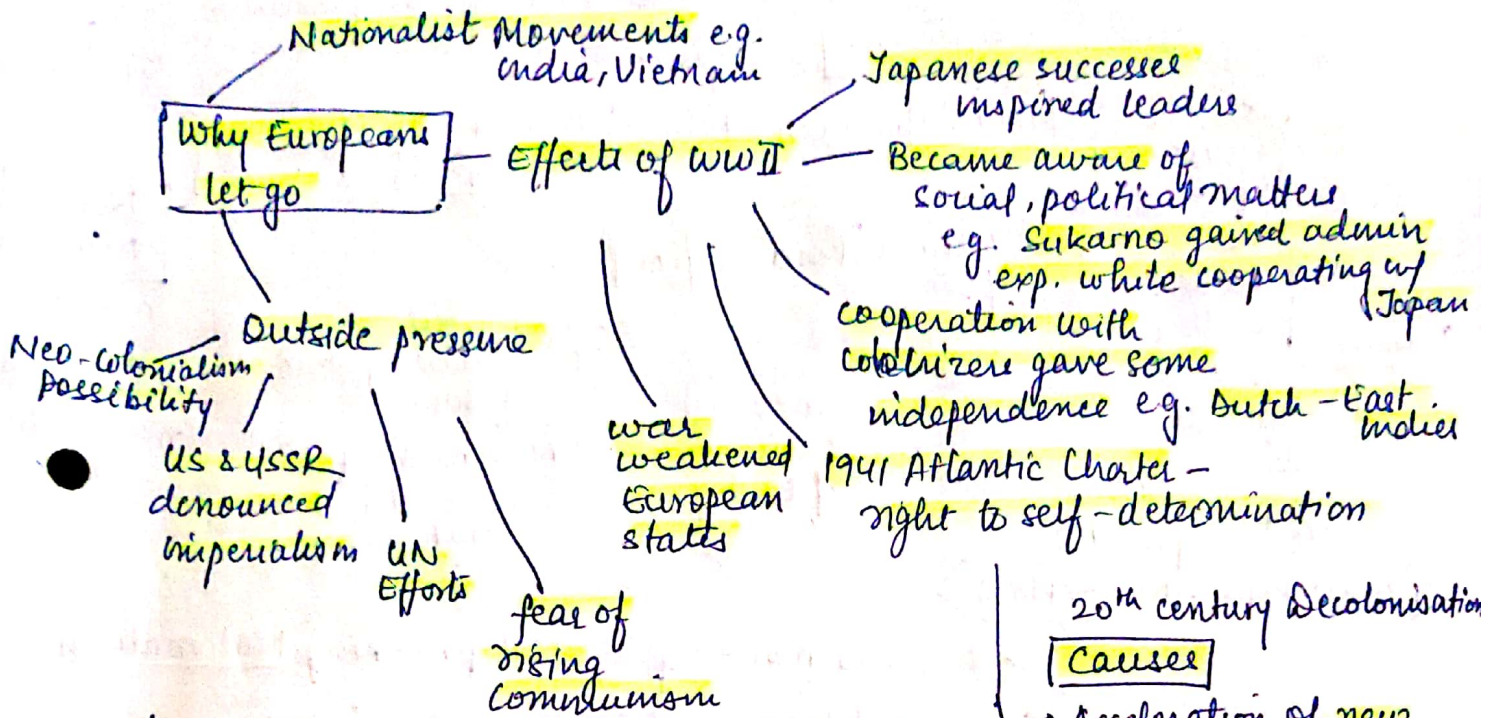 Nationalist Movements e.g.
India, Vietnam
Why Europeans
let go
Effects of WWII
Japanese successes
inspired leaders
Became aware of
social, political matters
eg. Sukarno gained admin
exp. while cooperating w/
Japan
cooperation with
colonizers gave some
independence e.g. Dutch-East
Indies
1941 Atlantic Charter -
right to self-determination
war
weakened
European
states
Outside pressure
Neo-colonialism
possibility
US & USSR
denounced
imperialism
UN
Efforts
fear of
rising
communism
20th century Decolonisation
Causes
of new